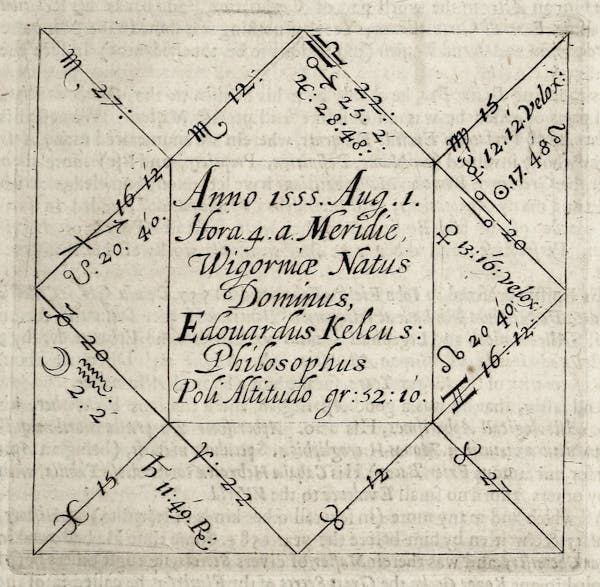 ♏ 27:
♏ 12:
♎ 22:
♂ 25. 2
♃: 28: 48:
♍ 15
☿. 12. 12. velox:
☉. 17. 48 ♌
♐ 16-12
☋: 20. 40.
Anno 1555. Aug. 1.
Hora. 4. a. Meridie,
Wigorniæ Natus
Dominus,
Edouardus Keleus:
Philosophus
Poli Altitudo gr: 52: 10.
♋ 20
♀ 13: 16: velox:
♑ 20
☽ ♒ 2: 2
☊ 20 40:
♊ 16-12:
♓ 15
♈: 22
♄ 11: 49. Re:
♉ 12
♉ 27